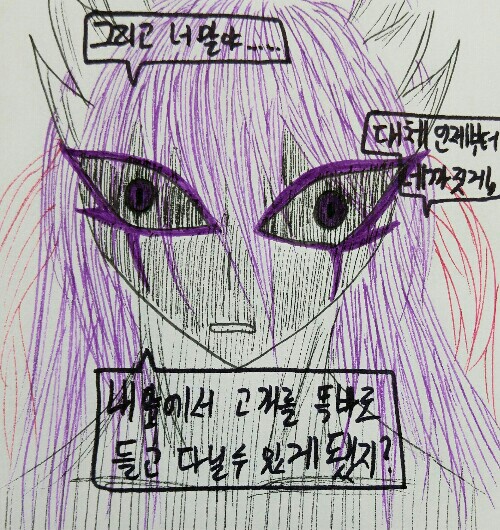 그리고 너 말야.....
대체 언제부터
네까짓게
내 앞에서 고개를 똑바로
들고 다닐 수 있게 됐지?